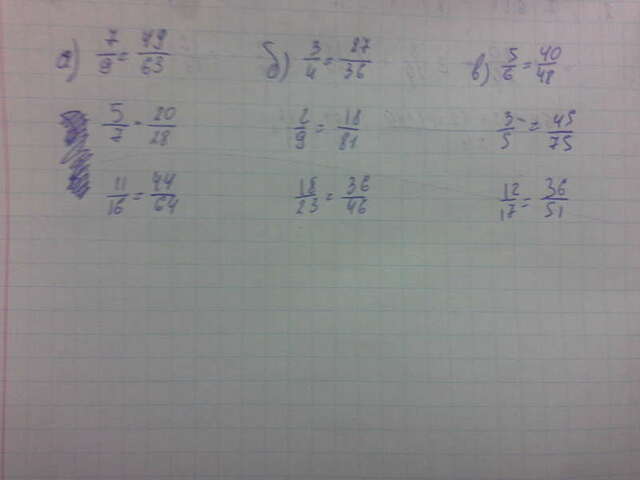 а) 7/9 = 49/63 б) 3/4 = 27/36 в) 5/6 = 40/48
5/7 = 20/28 2/9 = 18/81 3/5 = 45/75
11/16 = 44/64 18/23 = 36/46 12/17 = 36/51